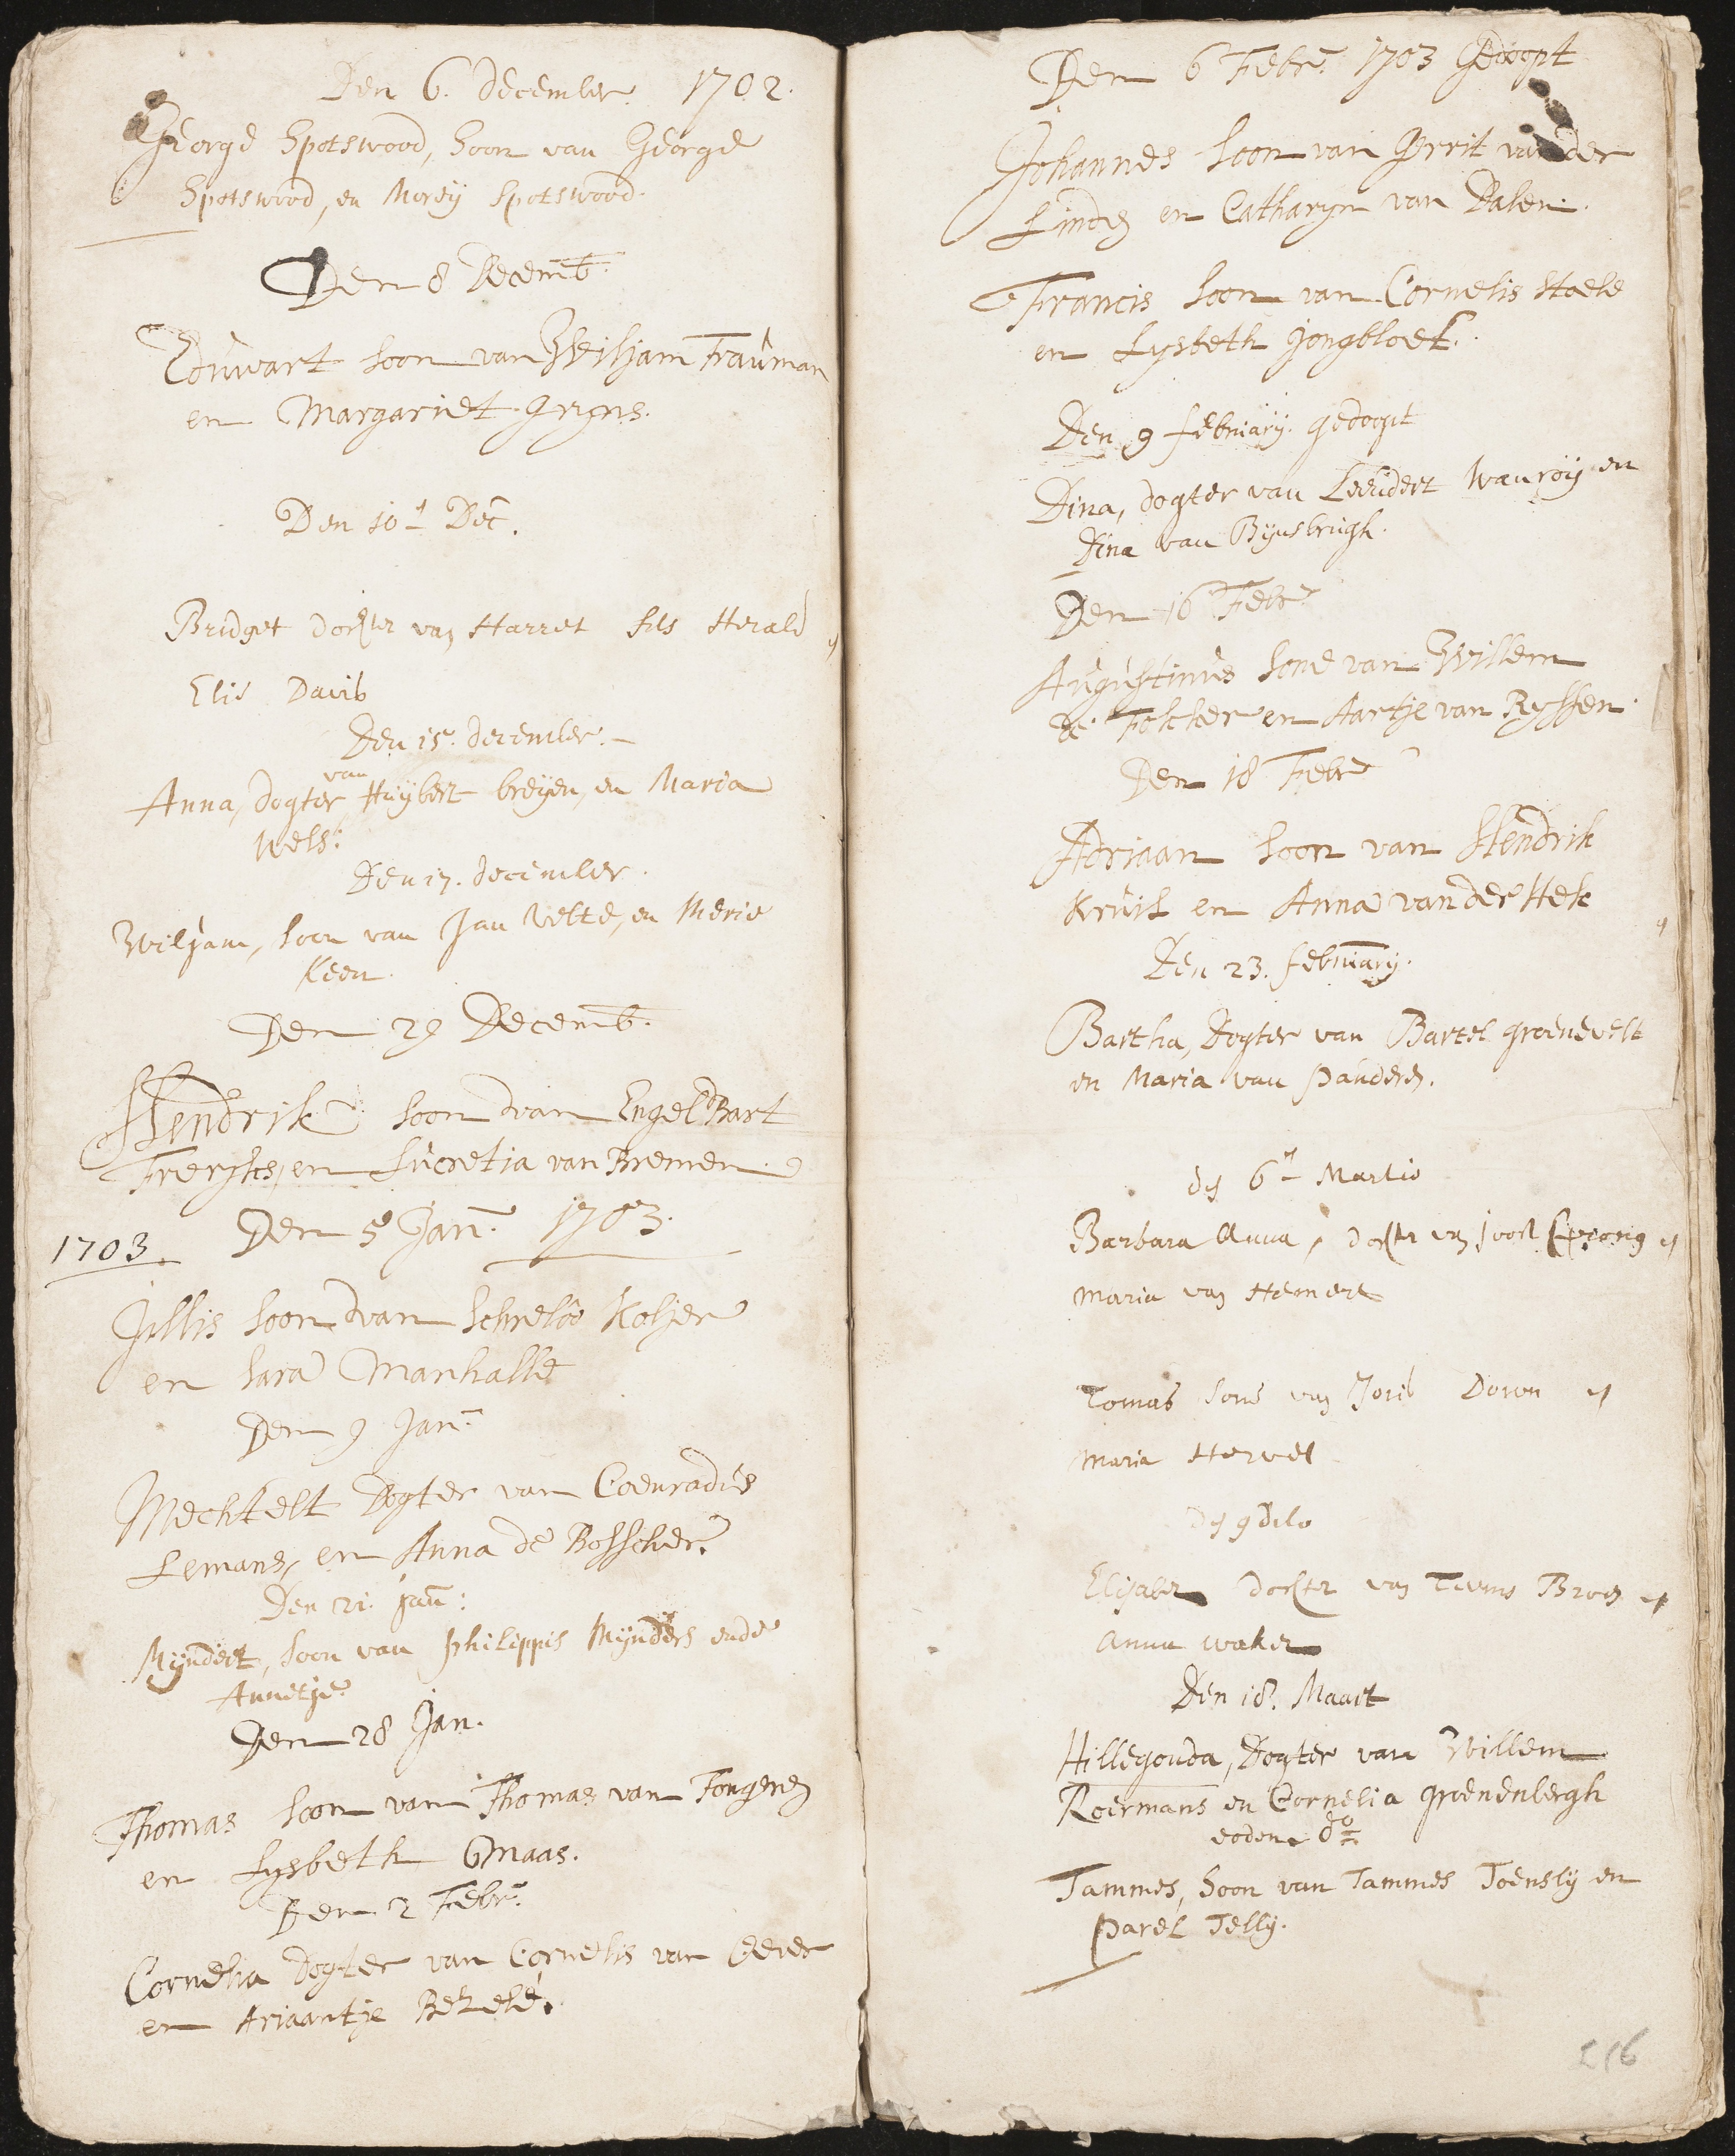 Den 6. december. 1702.
George Spotswood, Soon van George
Spotswood, en Morey Spotswood.
Den 8 Decemb.
Eduwart soon van Wiljam Trauman
en Margariet Gryns.
Den 10 Dec.
Bridget dochter van Harret fils Herald en
Elis Davis
Den 15. december.
Anna, dogter van Huybert breyen, en Maria
Wels.
Den 17. december.
Wiljam, soon van Jan Velte, en Merie
Keen.
Den 29 Decemb.
Hendrik soon van Engel Bart
Frerjhs, en Lucretia van Bremen.
1703. Den 5 Jan. 1703.
Jillis soon van Schreloo Koljer
en Sara Manhalle
Den 9 Jan.
Mechtelt Dogter van Coenradus
Lemans, en Anna de Bosscher.
Den 21. jan:
Myndert, soon van philippis Mynders ende
Annetje
Den 28 Jan.
Thomas soon van Thomas van Tongeren
en Lysbeth Maas.
Den 2 Febr.
Cornelia dogter van Cornelis van Eeves
en Ariaantje
Den 6 Febr. 1703 Gedoopt
Johannes soon van Grrit vander
Linden en Catharyn van Dalen.
Francis soon van Cornelis Hoele
en Lysbeth jongbloet.
Den 9 february. gedoopt
Dina, dogter van Leendert Wanroy en
Dina van Bynsbrugh.
Den 16 Febr.
Augustinus sone van Willem
de Folcker en Aartje van Ryssen.
Den 18 Febr
Adriaan soon van Hendrik
Kruis en Anna van der Hek
Den 23. february.
Bartha, Dogter van Bartel groenevelt
en Maria van panderen.
den 6 Martio
Barbara Anna, dochter van Joost en
Maria van Hemert
Tomas sone van Joris Down en
Maria Hervel
den 9 dito
Elisabet dochter van Teums Broen en
Anna waker
Den 18. Maart
Hillegonda, Dogter van Willem
Roermans en Cornelia groenenbergh
eodem do
Tammes, Soon van Tammes Toensly en
parel Telly.